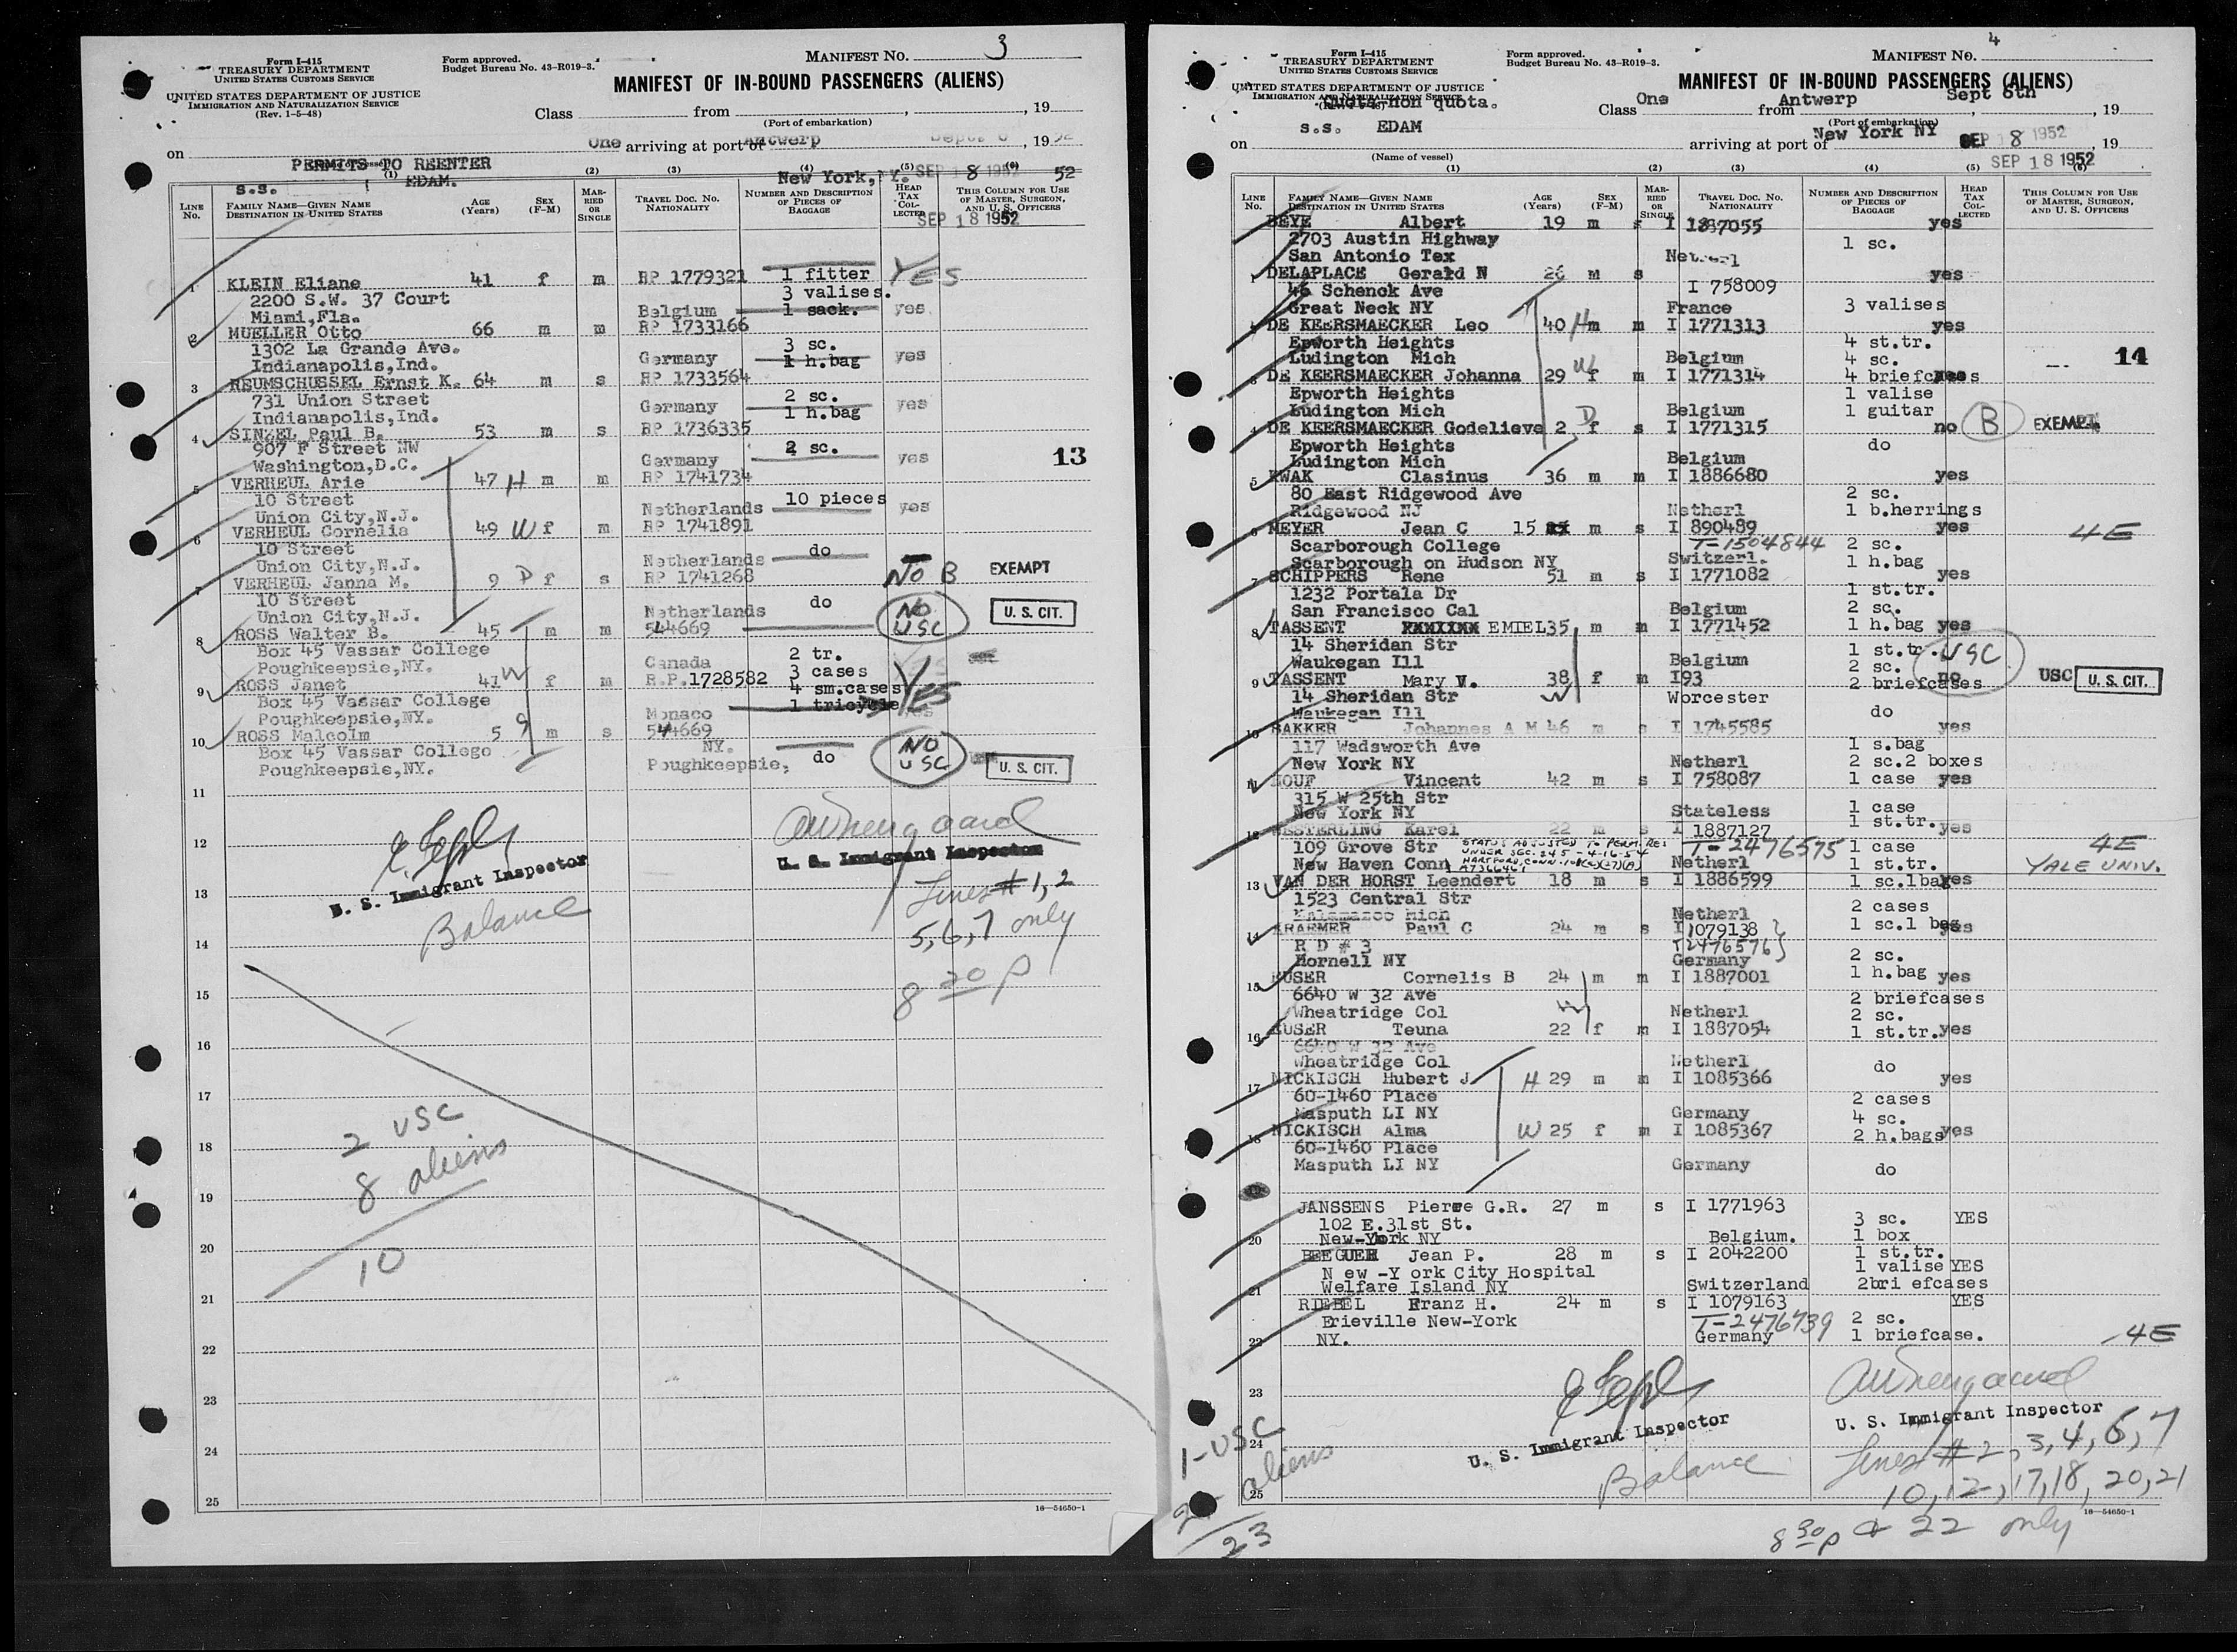 Form I-415
TREASURY DEPARTMENT
UNITED STATES CUSTOMS SERVICE
UNITED STATES DEPARTMENT OF JUSTICE
IMMIGRATION AND NATURALIZATION SERVICE
(Rev. 1-5-48)
Form approved.
Budget Bureau No. 43-R019-3.
MANIFEST NO. 3
MANIFEST OF IN-BOUND PASSENGERS (ALIENS)
Class from , 19
(Port of embarkation)
One Antwerp Sept. 52
on arriving at port of , 19
PERMITS TO REENTER
s.s. EDAM.
New York, SEP 18 1952 52
SEP 18 1952
(1) (2) (3) (4) (5) (6)
LINE No. FAMILY NAME—GIVEN NAME DESTINATION IN UNITED STATES AGE (Years) SEX (F-M) MARRIED OR SINGLE TRAVEL DOC. NO. NATIONALITY NUMBER AND DESCRIPTION OF PIECES OF BAGGAGE HEAD TAX COLLECTED THIS COLUMN FOR USE OF MASTER, SURGEON, AND U. S. OFFICERS
1 KLEIN Eliane 41 f m RP 1779321 1 fitter YES
2200 S.W. 37 Court 3 valises.
Miami,Fla. Belgium 1 sack. yes
2 MUELLER Otto 66 m m RP 1733166
1302 La Grande Ave. 3 sc.
Indianapolis,Ind. Germany 1 h.bag yes
3 REUMSCHUSSEL Ernst K. 64 m s RP 1733564
731 Union Street 2 sc.
Indianapolis,Ind. Germany 1 h.bag yes
4 SINZEL Paul B. 53 m s RP 1736335
907 F Street NW 2 sc.
Washington,D.C. Germany yes 13
5 VERHEUL Arie 47 H m m RP 1741734
10 Street 10 pieces
Union City,N.J. Netherlands yes
6 VERHEUL Cornelia 49 W f m RP 1741891
10 Street do
Union City,N.J. Netherlands
7 VERHEUL Janna M. 9 D f s RP 1741268 NO B EXEMPT
10 Street do
Union City,N.J. Netherlands NO
8 ROSS Walter B. 45 m m 544669 USC U. S. CIT.
Box 45 Vassar College 2 tr.
Poughkeepsie,NY. Canada 3 cases
9 ROSS Janet 41 W f m R.P.1728582 4 sm.cases YES
Box 45 Vassar College 1 tricycle
Poughkeepsie,NY. Monaco yes
10 ROSS Malcolm 5 m s 544669 NO
Box 45 Vassar College NY. do USC U. S. CIT.
Poughkeepsie,NY. Poughkeepsie,
11
12
U. S. Immigrant Inspector
U. S. Immigrant Inspector
13
Balance
Lines # 1, 2
5, 6, 7 only
8 20 p
14
15
16
17
2 USC
18
8 aliens
19
20
10
21
22
23
24
25
16—54650-1
Form I-415
TREASURY DEPARTMENT
UNITED STATES CUSTOMS SERVICE
UNITED STATES DEPARTMENT OF JUSTICE
IMMIGRATION AND NATURALIZATION SERVICE
Quota-non quota.
Form approved.
Budget Bureau No. 43-R019-3.
MANIFEST NO. 4
MANIFEST OF IN-BOUND PASSENGERS (ALIENS)
Class One from Antwerp Sept 6th , 19
(Port of embarkation)
s.s. EDAM
New York NY SEP 18 1952
on arriving at port of , 19
(Name of vessel) SEP 18 1952
(1) (2) (3) (4) (5) (6)
LINE No. FAMILY NAME—GIVEN NAME DESTINATION IN UNITED STATES AGE (Years) SEX (F-M) MARRIED OR SINGLE TRAVEL DOC. NO. NATIONALITY NUMBER AND DESCRIPTION OF PIECES OF BAGGAGE HEAD TAX COLLECTED THIS COLUMN FOR USE OF MASTER, SURGEON, AND U. S. OFFICERS
BEYE Albert 19 m s I 1887055 yes
2703 Austin Highway 1 sc.
San Antonio Tex Netherl
1 DELAPLACE Gerald N 26 m s yes
46 Schenck Ave I 758009
Great Neck NY France 3 valises
DE KEERSMAECKER Leo 40 H m m I 1771313 yes
Epworth Heights 4 st.tr.
Ludington Mich Belgium 4 sc. 14
3 DE KEERSMAECKER Johanna 29 W f m I 1771314 4 briefcases
Epworth Heights 1 valise
Ludington Mich Belgium 1 guitar
4 DE KEERSMAECKER Godelieve 2 D f s I 1771315 no B EXEMPT
Epworth Heights do
Ludington Mich Belgium
5 KWAK Clasinus 36 m m I 1886680 yes
80 East Ridgewood Ave 2 sc.
Ridgewood NJ Netherl 1 b.herrings
6 MEYER Jean C 15 m s I 890489 yes 4E
Scarborough College T-1504844 2 sc.
Scarborough on Hudson NY Switzerl. 1 h.bag
7 SCHIPPERS Rene 51 m s I 1771082 yes
1232 Portala Dr 1 st.tr.
San Francisco Cal Belgium 2 sc.
8 TASSENT EMIEL 35 m m I 1771452 1 h.bag yes
14 Sheridan Str 1 st.tr. USC
Waukegan Ill Belgium 2 sc.
9 TASSENT Mary V. 38 f m I93 2 briefcases no USC U. S. CIT.
14 Sheridan Str W Worcester
Waukegan Ill do
10 BAKKER Johannes A M 46 m s I 1745585 yes
117 Wadsworth Ave 1 s.bag
New York NY Netherl 2 sc.2 boxes
11 Vincent 42 m s I 758087 1 case yes
315 W 25th Str
New York NY Stateless 1 case
12 WESTERLING Karel 22 m s I 1887127 1 st.tr. yes
109 Grove Str STATUS ADJUSTED TO PERM. RES. T-2476575 1 case 4E
UNDER SEC. 245 - 4-16-54
New Haven Conn HARTFORD, CONN. Netherl 1 st.tr. YALE UNIV.
13 VAN DER HORST Leendert 18 m s I 1886599 1 sc.1bag yes
1523 Central Str
Kalamazoo Mich Netherl 2 cases
14 KRAEMER Paul C 24 m s I 1079138 1 sc.1 bag yes
R D # 3 T 2476576
Hornell NY Germany 2 sc.
15 Cornelis B 24 m m I 1887001 1 h.bag yes
6640 W 32 Ave 2 briefcases
Wheatridge Col W Netherl 2 sc.
16 Teuna 22 f m I 1887054 1 st.tr. yes
6640 W 32 Ave
Wheatridge Col Netherl do
17 NICKISCH Hubert J H 29 m m I 1085366 yes
60-1460 Place 2 cases
Masputh LI NY Germany 4 sc.
18 NICKISCH Alma W 25 f m I 1085367 2 h.bags yes
60-1460 Place
Masputh LI NY Germany do
JANSSENS Pierre G.R. 27 m s I 1771963
102 E.31st St. 3 sc. YES
20 New-York NY Belgium. 1 box
BEEGUER Jean P. 28 m s I 2042200 1 st.tr.
N ew -Y ork City Hospital 1 valise YES
21 Welfare Island NY Switzerland 2bri efcases
RIEBEL Franz H. 24 m s I 1079163 YES
Erieville New-York T-2476739 2 sc.
22 NY. Germany 1 briefcase. -4E
23
U. S. Immigrant Inspector
U. S. Immigrant Inspector
24
1-USC
aliens
Balance
Lines # 2, 3, 4, 6, 7
10, 12, 17, 18, 20, 21
25
16—54650-1
23
8 30 p & 22 only